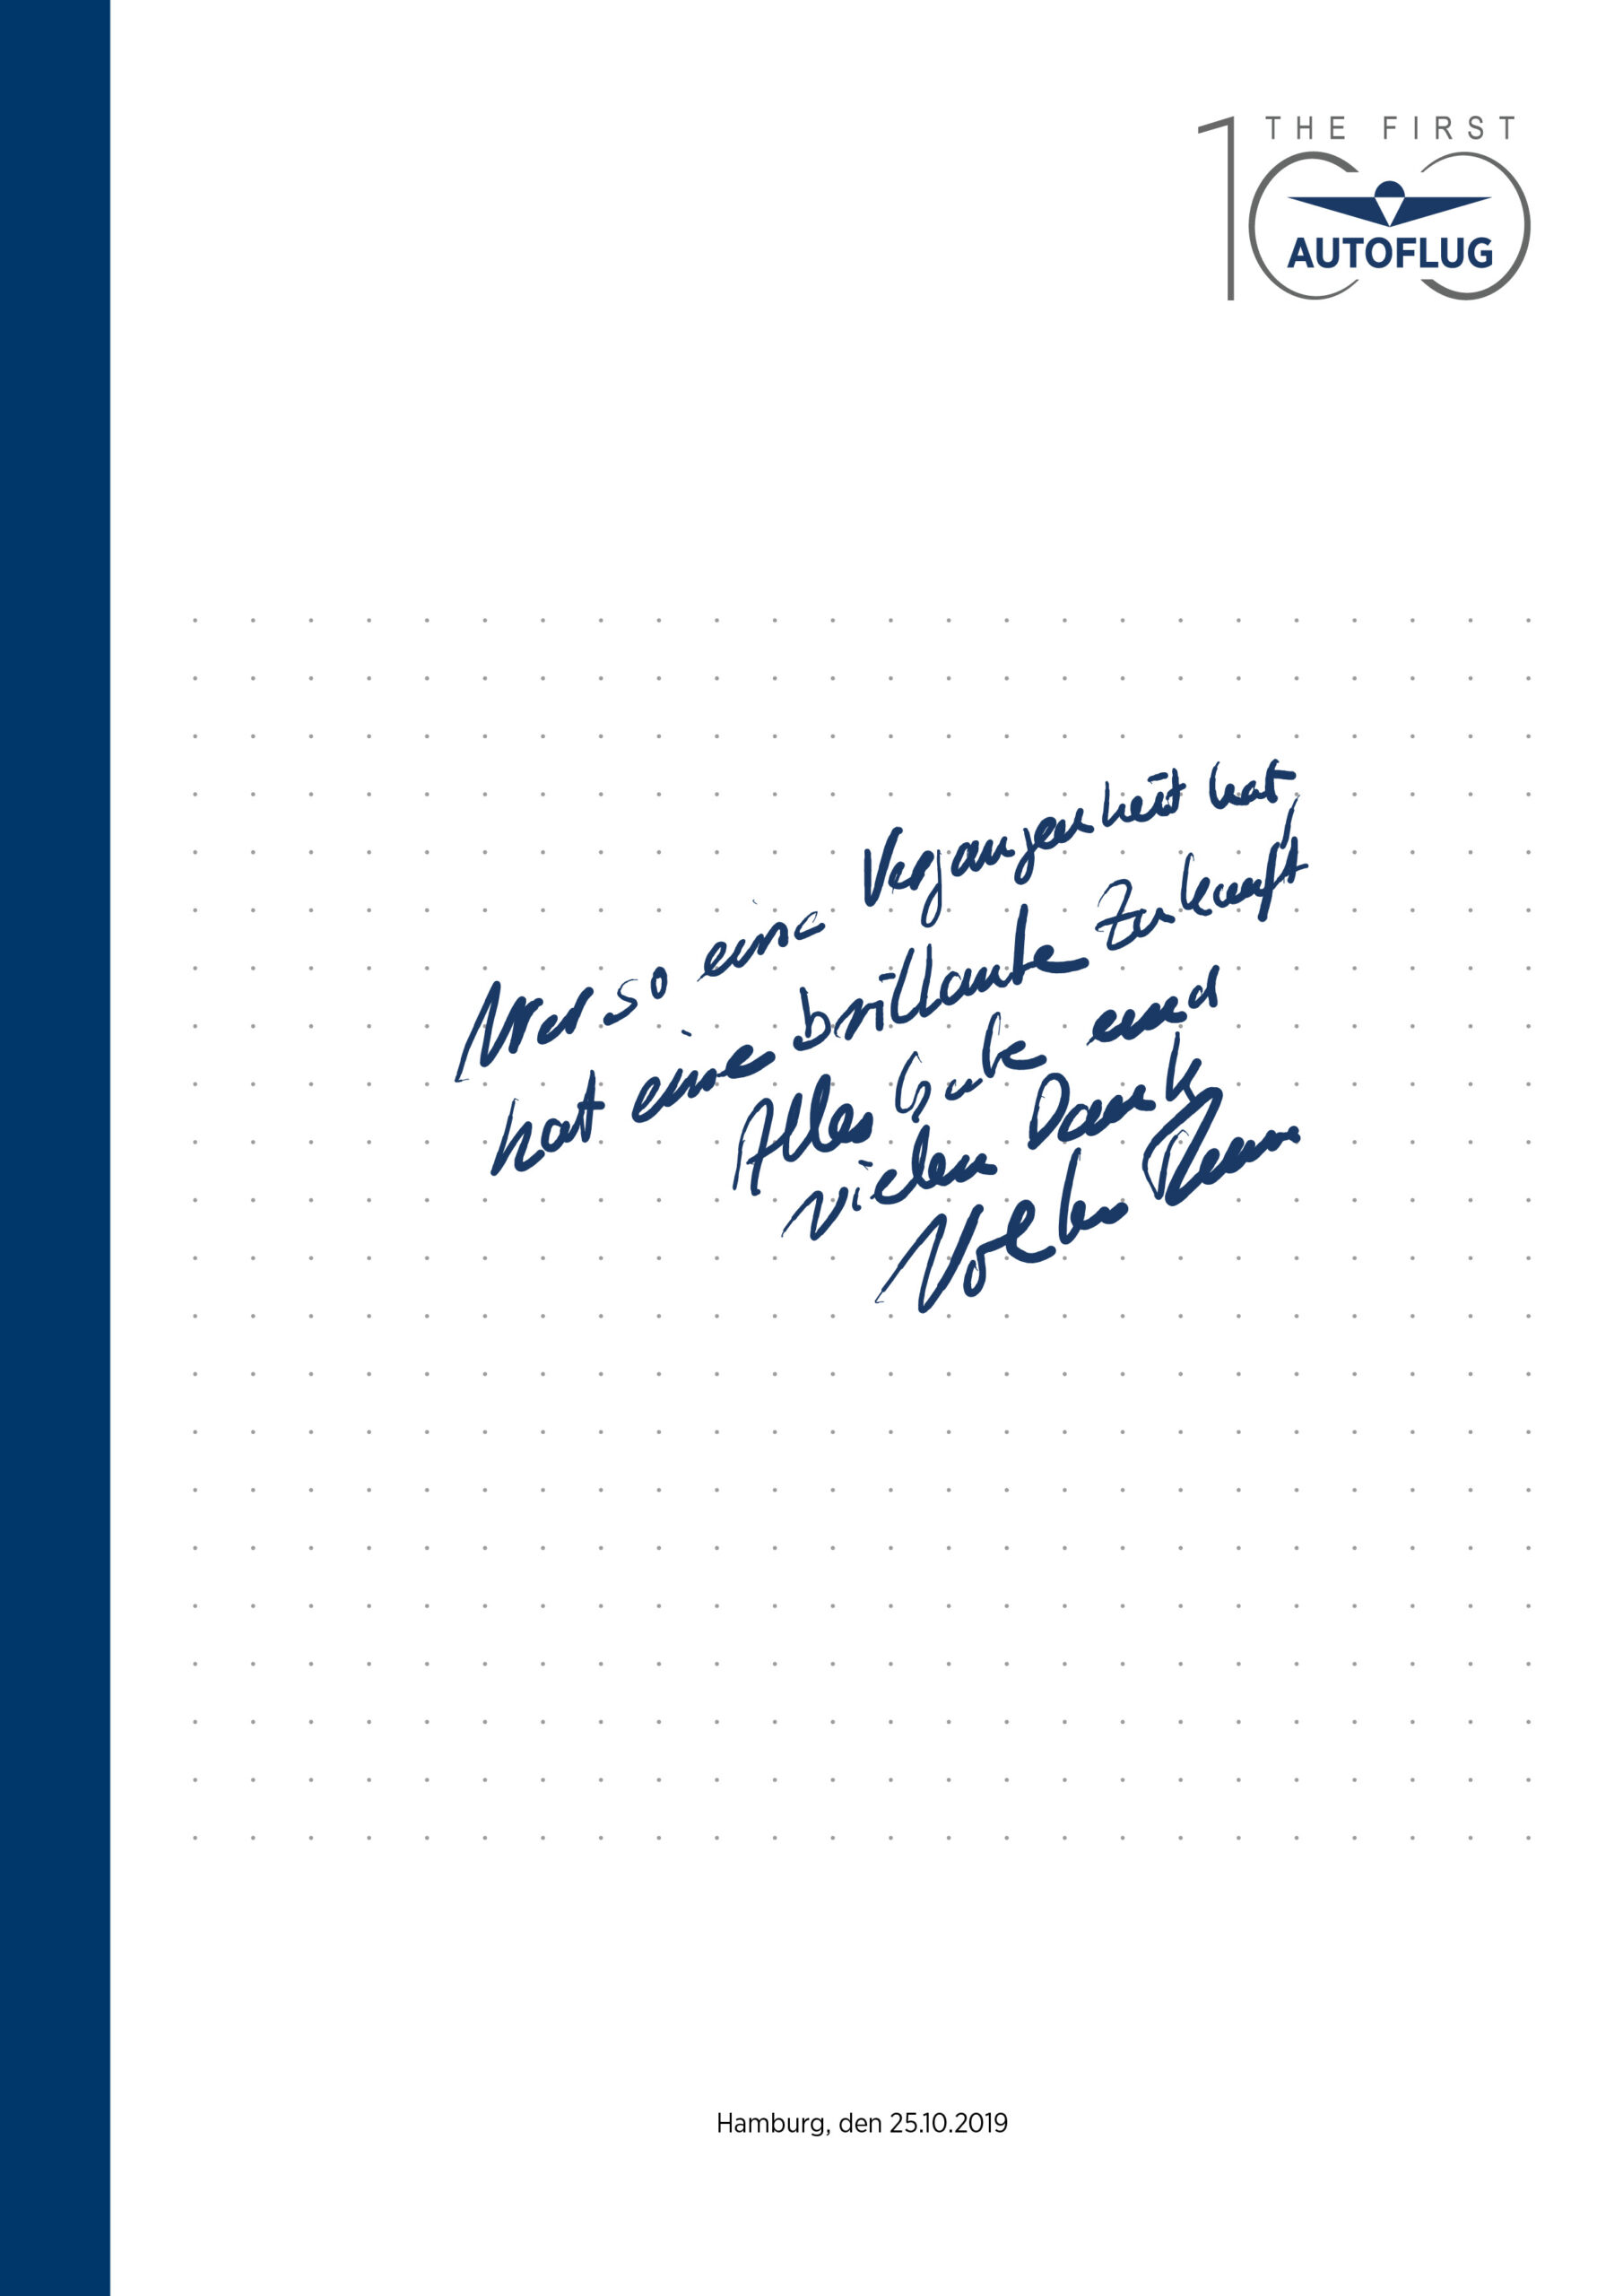 THE FIRST
100
AUTOFLUG
Wer so eine Vergangenheit hat
hat eine brillante Zukunft
Alles Gute und
vielen Dank
Hamburg, den 25.10.2019